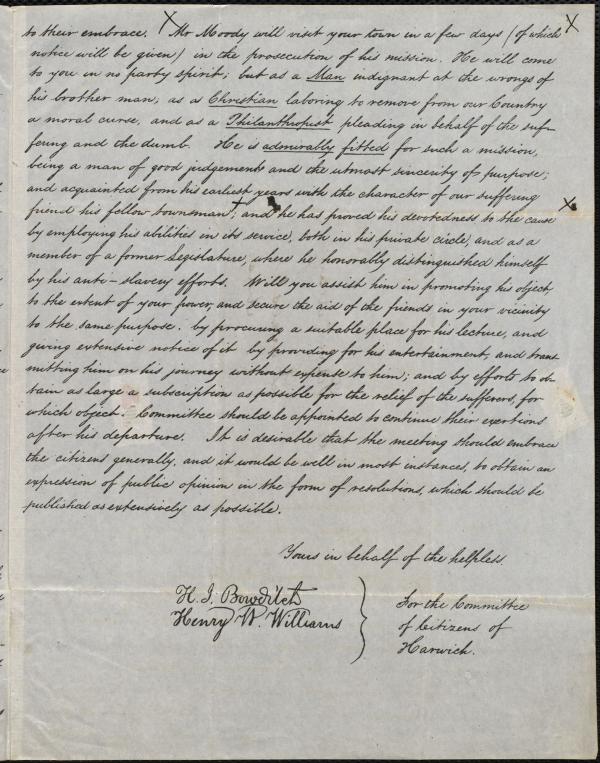 to their embrace. X Mr Moody will visit your town in a few days (of which X
notice will be given) in the prosecution of his mission. He will come
to you in no party spirit; but as a Man indignant at the wrongs of
his brother man, as a Christian laboring to remove from our Country
a moral curse, and as a Philanthropist pleading in behalf of the suf-
fering and the dumb. He is admirably fitted for such a mission,
being a man of good judgement and the utmost sincerity of purpose;
and acquainted from his earliest years with the character of our suffering
friend his fellow townsman X; and he has proved his devotedness to the cause X
by employing his abilities in its service, both in his private circle, and as a
member of a former Legislature, where he honorably distinguished himself
by his anti-slavery efforts. Will you assist him in promoting his object,
to the extent of your power, and secure the aid of the friends in your vicinity
to the same purpose. by procuring a suitable place for his lecture, and
giving extensive notice of it by providing for his entertainment, and trans-
mitting him on his journey without expense to him; and by efforts to ob-
tain as large a subscription as possible for the relief of the sufferers, for
which object. Committee should be appointed to continue their exertions
after his departure. It is desirable that the meeting should embrace
the citizens generally, and it would be well in most instances, to obtain an
expression of public opinion in the form of resolutions, which should be
published as extensively as possible.
Yours in behalf of the helpless.
H. I. Bowditch
Henry W. Williams
For the Committee
of Citizens of
Harwich.